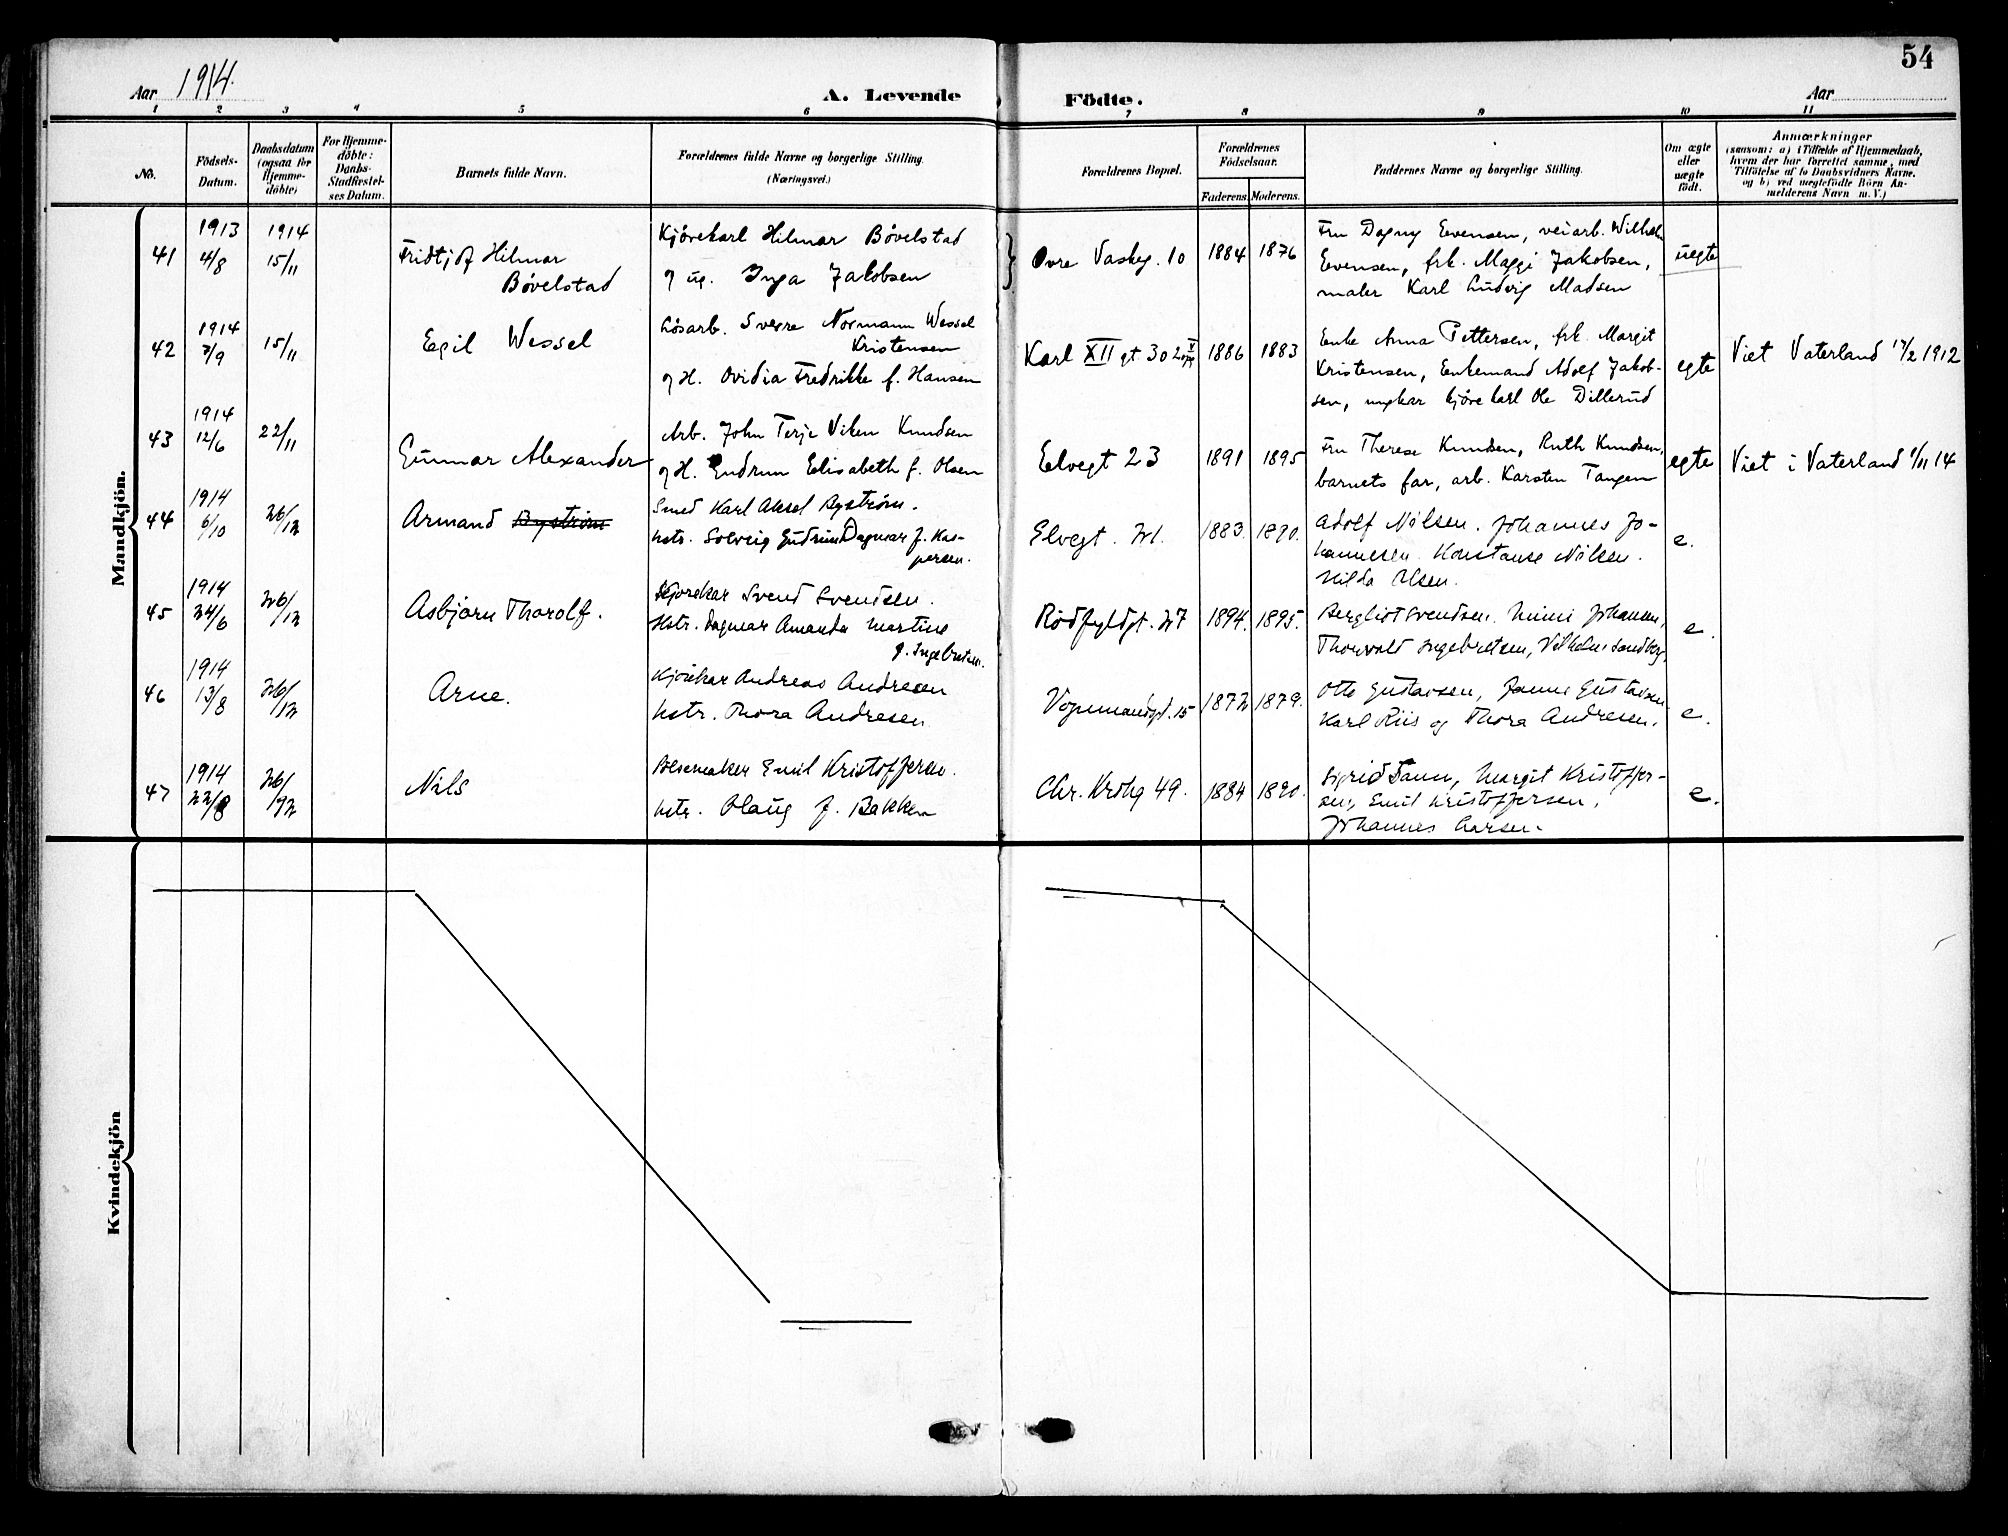 54
Aar 1914.
A. Levende Födte.
Aar
1 2 3 4 5 6 7 8 9 10 11
No.
Födsels-Datum.
Daabsdatum (ogsaa for Hjemme-döbte)
For Hjemme-döbte: Daabs-Stadfæstel-ses Datum.
Barnets fulde Navn.
Forældrenes fulde Navne og borgerlige Stilling.
(Næringsvei.)
Forældrenes Bopæl.
Forældrenes Födselsaar.
Faderens. Moderens.
Faddernes Navne og borgerlige Stilling.
Om ægte eller uægte födt.
Anmærkninger
(saasom: a) i Tilfælde af Hjemmedaab,
hvem der har forrettet samme, med
Tilföielse af to Daabsvidners Navne,
og b) ved uægtefödte Börn An-
melderens Navn m. V.)
Mandkjön.
41
1913
4/8
1914
15/11
Fridtjof Hilmar
Bövelstad
Kjörekarl Hilmar Bövelstad
og ug. Inga Jakobsen
Övre Vaskeg. 10
1884 1876
Fru Dagny Evensen, veiarb. Wilhelm
Evensen, frk. Maggi Jakobsen,
maler Karl Ludvig Madsen
uegte
42
1914
3/9
15/11
Egil Wessel
Lösarb. Sverre Normann Wessel
Kristensen
og H. Ovidia Fredrikke f. Hansen
Karl XII gt 30
1886 1883
Enke Anna Pettersen, frk. Margit
Kristensen, Enkemand Adolf Jakob-
sen, ungkar kjörekarl Ole Dillerud
egte
Viet Vaterland 17/2 1912
43
1914
12/6
22/11
Gunnar Alexander
Arb. John Terje Viken Knudsen
og H. Gudrun Elisabeth f. Olsen
Elvegt 23
1891 1895
Fru Therese Knudsen, Ruth Knudsen,
barnets far, arb. Karsten Tangen
egte
Viet i Vaterland 1/11 14
44
1914
6/10
26/12
Armand Byström
Smed Karl Aksel Byström.
Hstr. Solveig Gudrun Dagmar f. Kas-
persen.
Elvegt. 21.
1883. 1890.
Adolf Nilsen. Johannes Jo-
hannesen. Konstanse Nilsen.
Hilda Olsen.
e.
45
1914
24/6
26/12
Asbjörn Tharolf.
Kjörekar Svend Svendsen.
Hstr. Dagmar Amanda Martine
f. Ingebretsen.
Rödfyldgt. 27
1894. 1895.
Bergliot Svendsen. Mimi Johansen,
Thorvald Ingebretsen, Vilhelm Sandberg.
e.
46
1914
13/8
26/12
Arne.
Kjörekar Andreas Andresen
Hstr. Thora Andresen.
Vognmandsgt. 15
1872 1879.
Otto Gustavsen, Janne Gustavsen
Karl Riis og Thora Andresen.
e.
47
1914
22/8
26/12
Nils
Pölsemaker Emil Kristoffersen.
Hstr. Olaug f. Bakken
Chr. Krohg 49.
1884 1890.
Sigrid Tann, Margit Kristoffer-
sen, Emil Kristoffersen.
Johannes Larsen.
e.
Kvindekjön